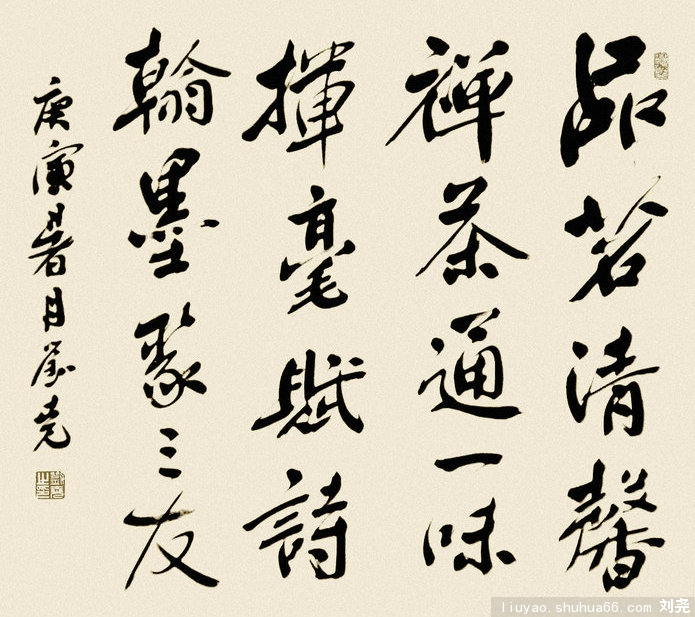 品茗清馨
禅茶通一味
揮毫賦詩
翰墨聚三友
庚寅暑月刘尧
liuyao.shuhua66.com 刘尧